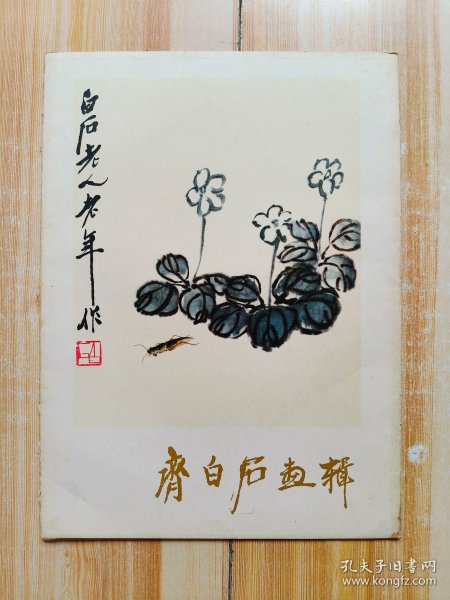 白石老人老年作
齊白石画輯
孔夫子旧书网
www.kongfz.com